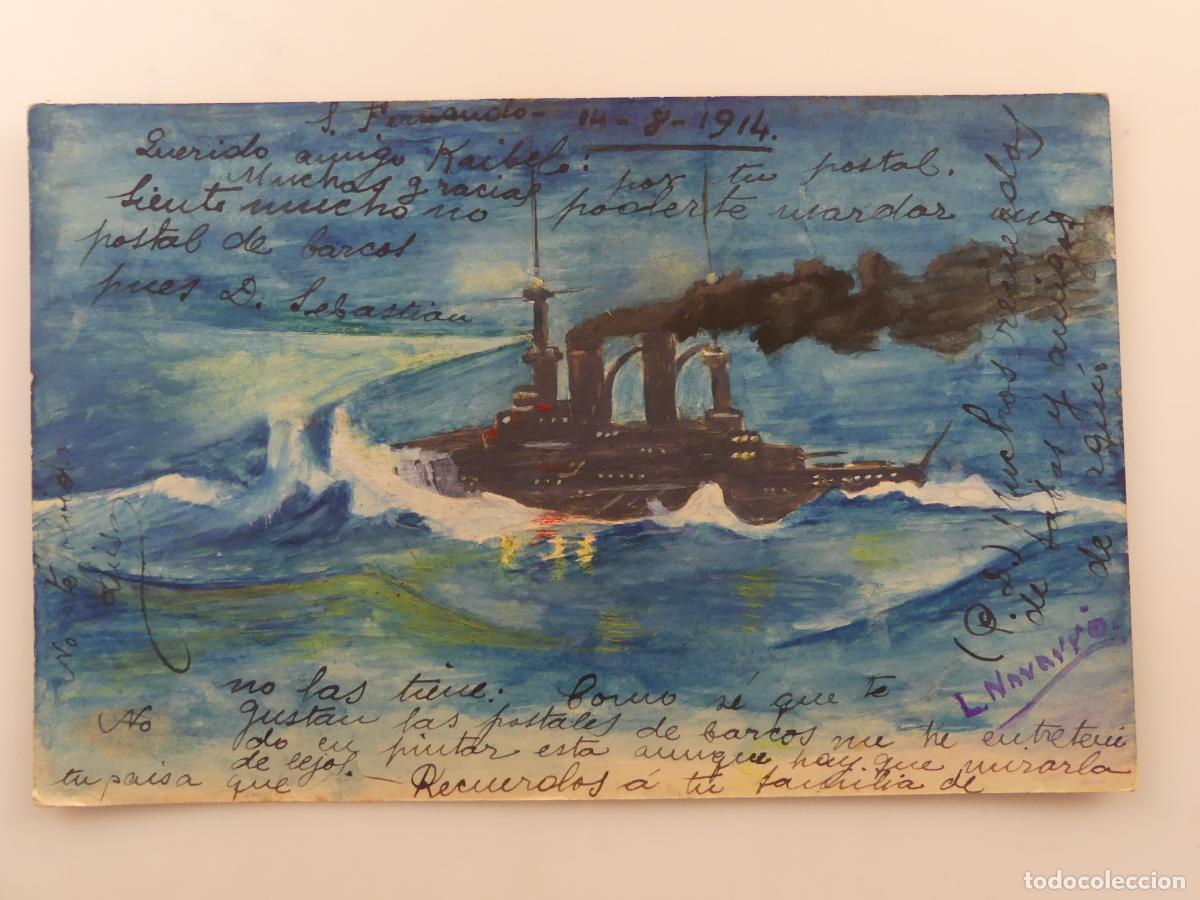 S. Fernando- 14-8-1914.
Querido amigo Kaibel:
Muchas gracias por tu postal.
Siento mucho no poderte mardar una
postal de barcos
pues D. Sebastian
no las tiene: Como sé que te
gustan las postales de barcos me he entreteni
do en pintar esta aunque hay que mirarla
de lejos. - Recuerdos á tu familia de
tu paisa que
No
No
(P. D.) Muchos recuerdos
de amigas
de aquí.
L. Navarro.
todocoleccion